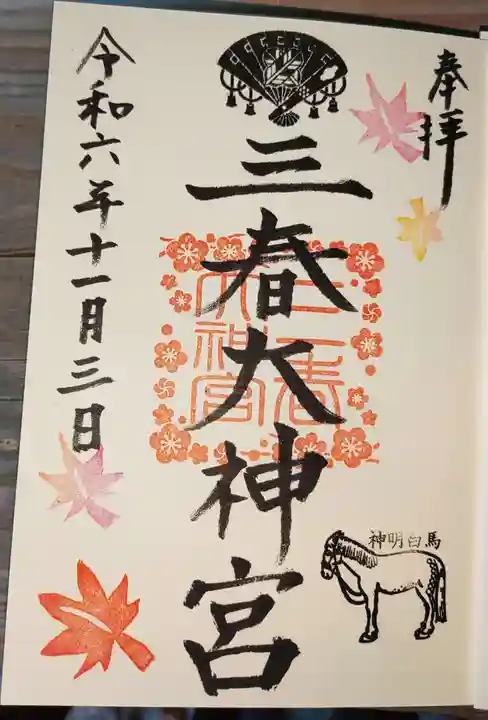 奉拝
三春大神宮
三春大神宮
令和六年十一月三日
神明白馬